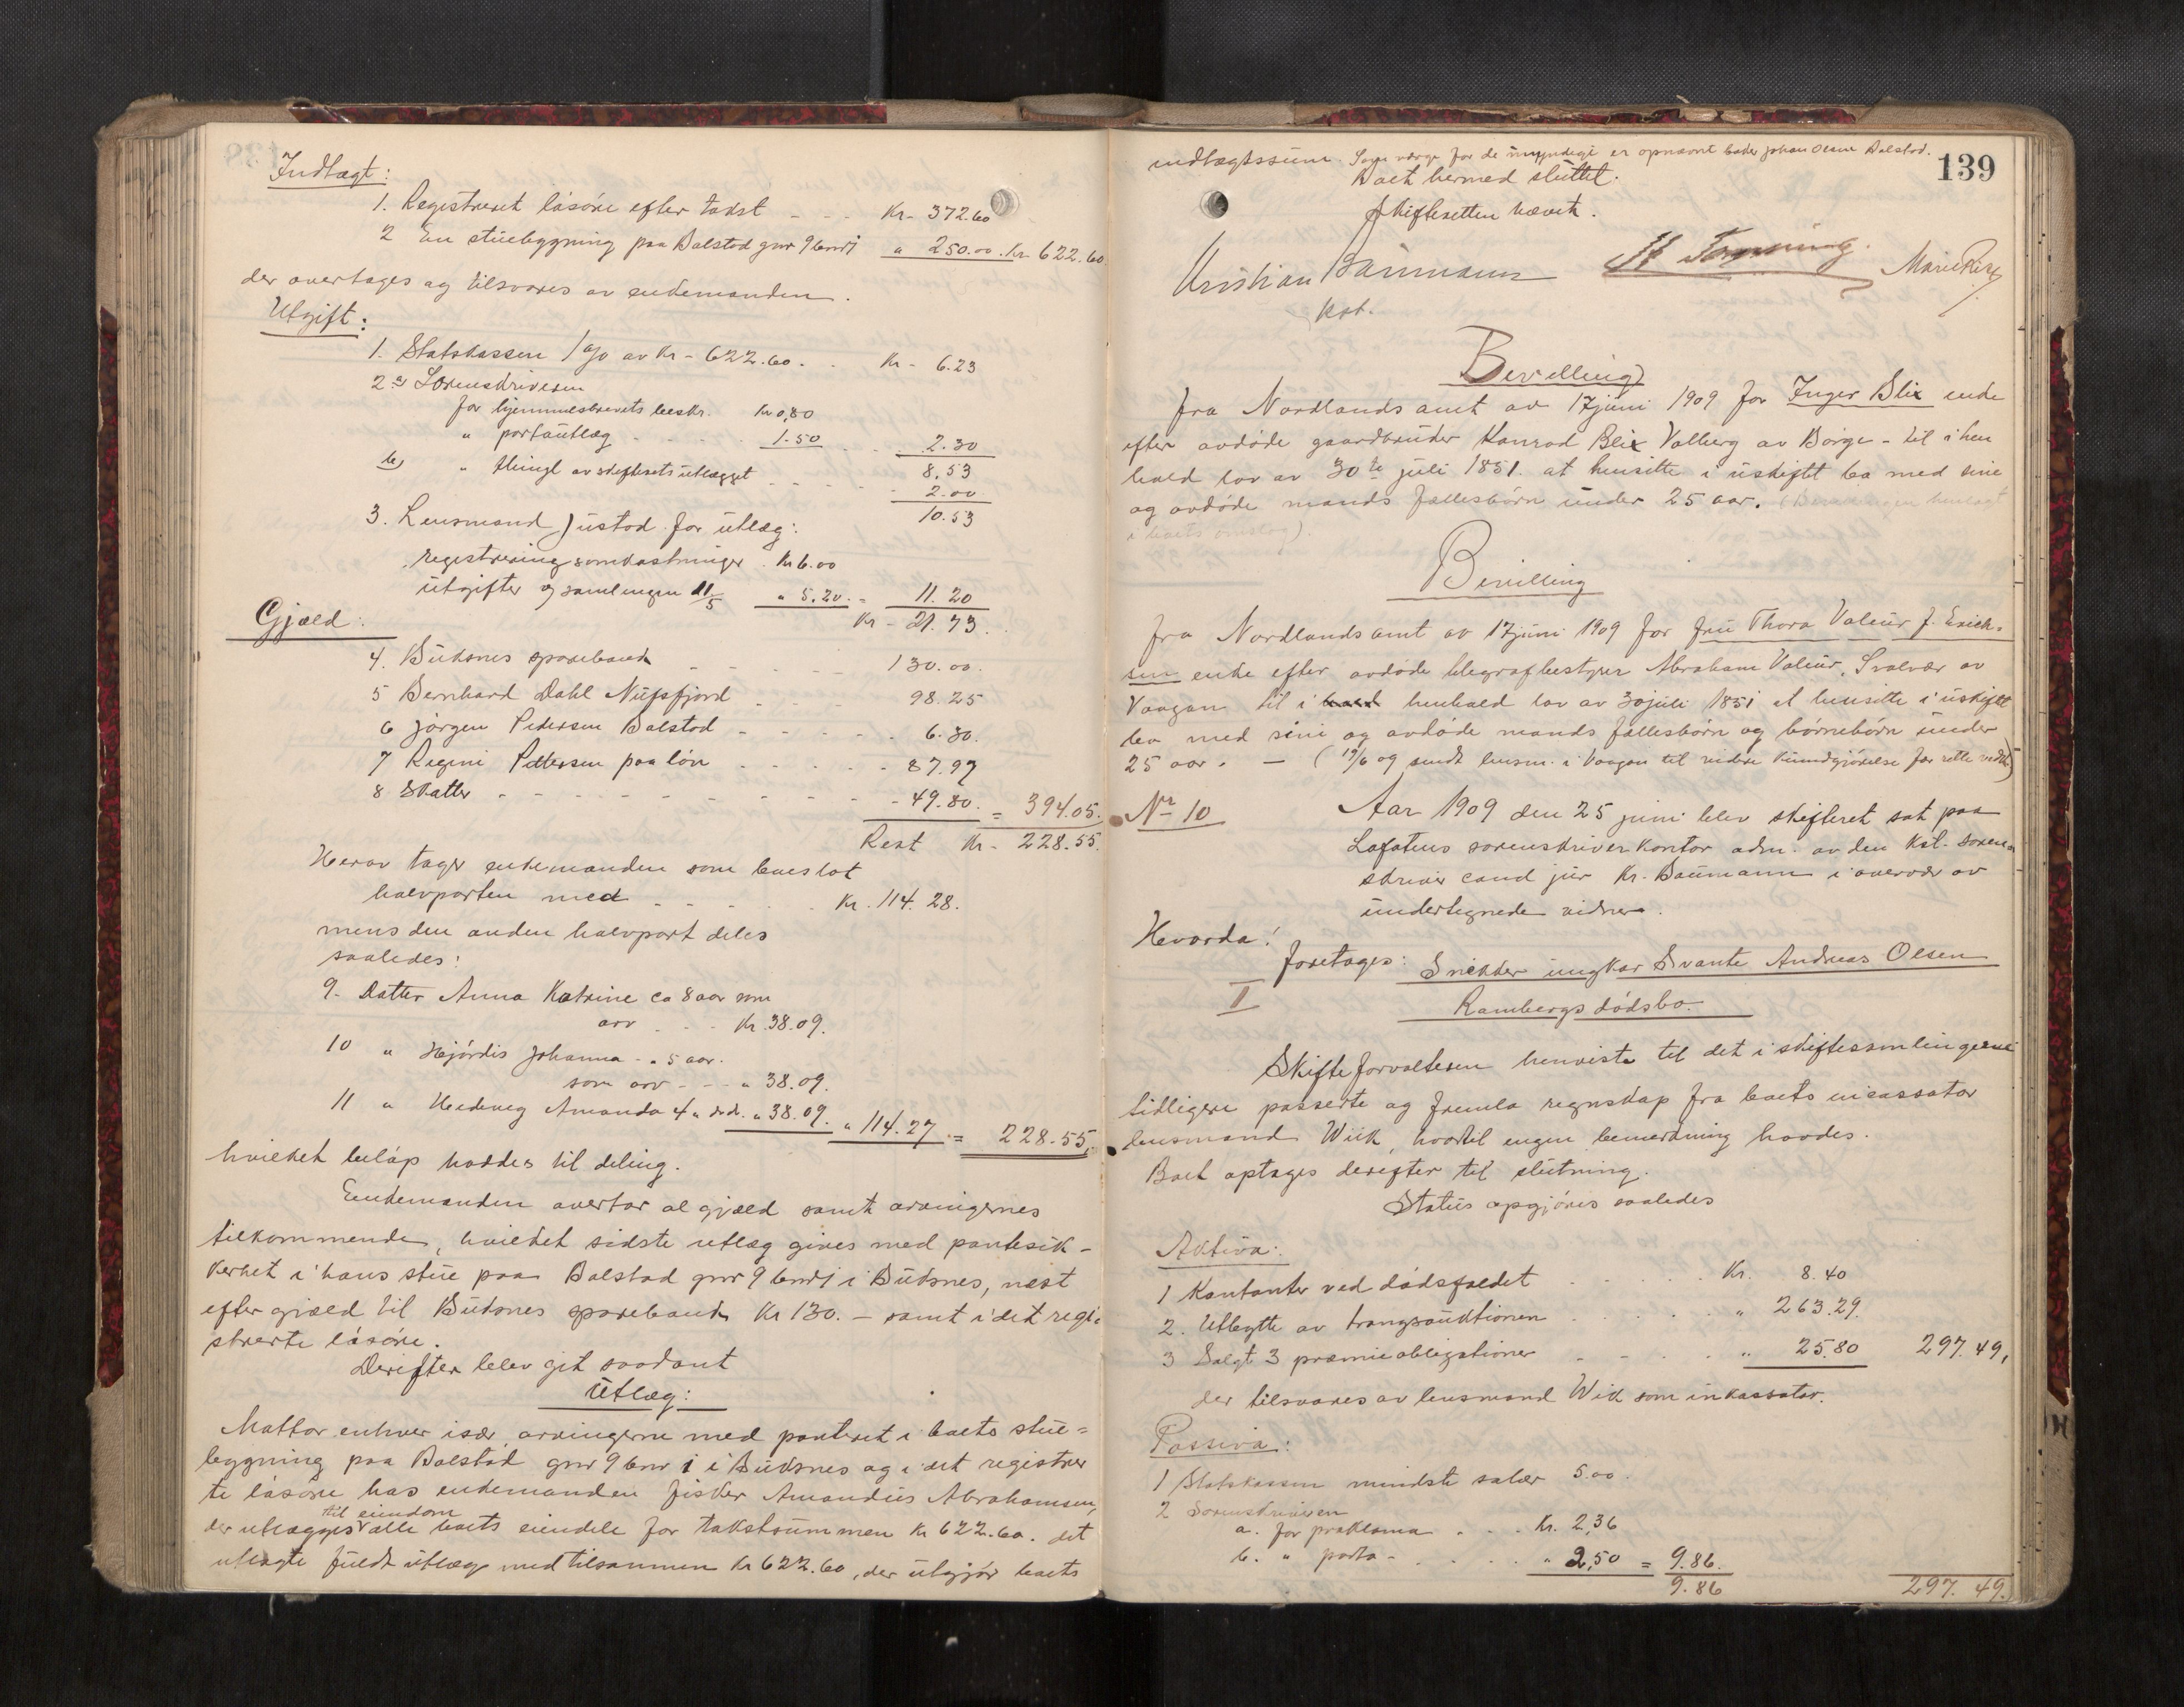 Indtægt:
1. Registreret løsøre efter takst - - - Kr- 372.60
2 En stuebygning paa Balstad gnr 9 bnr 1 " 250.00. Kr 622.60
der overtages og tilsvares av enkemanden.
Utgift:
1. Statskassen 1% av Kr- 622.60. . Kr- 6.23
2 a Sorenskriveren
for hjemmelsbrevets beskr. Kr 0,80
" portoutlæg - - - 1.50 . . 2.30
8.53
b) " thingl av skifterets utlægget - - - 2.00
10.53
3. Lensmand Justad for utlæg:
registreringsomkostninger . Kr 6.00
utgifter og samlingen 11/5 " 5.20. = 11.20
Kr- 21.73.
Gjæld:
4. Buksnes sparebank - - - 130.00.
5 Bernhard Dahl Nufsfjord - - - 98.25
6 Jørgen Pedersen Balstad - - - 6.30.
7 Regini Pettersen paa løn - - - 87.97
8 Skatter - - - - - - - 49.80. = 394.05.
Rest Kr- 228.55.
Herav tager enkemanden som boeslot
halvparten med - - - Kr. 114.28.
mens den anden halvpart deles
saaledes:
9. Datter Anna Katrine ca 8 aar som
arv - - - Kr. 38.09.
10 " Hjørdis Johanna - " 5 aar.
som arv - - - " 38.09.
11 " Hedevig Amanda 4 " do do. " 38.09. " 114.27. = 228.55.
hvilket beløp haddes til deling.
Enkemanden overtar al gjæld samt arvingernes
tilkommende, hvilket sidste utlæg gives med pantesik-
kerhet i hans stue paa Balstad gnr 9 bnr 1 i Buksnes, næst
efter gjæld til Buksnes sparebank Kr 130.- samt i det regi-
strerte løsøre.
Derefter blev git saadant
Utlæg:
Mottar enhver især arvingerne med panteret i boets stue=
bygning paa Balstad gnr 9 bnr 1 i Buksnes og i det registrer
te løsøre hos enkemanden fisker Amandus Abrahamsen,
til eiendom
der utlægges alle boets eiendele for takstsummen Kr 622.60. det
utlagte fuldt utlæg med tilsammen Kr 622.60, der utgjør boets
139
indtægtssum. Som værge for de umyndige er opnævnt bader Johan Olsen Balstad.
Boet hermed sluttet.
Skifteretten hævet.
Kristian Baumann
kst.
Bevilling
fra Nordlands amt av 17 juni 1909 for Inger Blix enke
efter avdøde gaardbruker Konrad Blix Valberg av Borge - til i hen
hold lov av 30te juli 1851. at hensitte i uskiftet bo med sine
og avdøde mands fællesbørn under 25 aar. (Bevillingen henlagt
i boets omslag).
Bevilling
fra Nordlands amt av 17 juni 1909 for fru Thora Valeur f. Erich-
sen enke efter avdøde telegrafbestyrer Abraham Valeur, Svolvær av
Vaagan til i henhold lov av 30 juli 1851 at hensitte i uskiftet
bo med sine og avdøde mands fællesbørn og børnebørn under
25 aar. - (19/6 09 sendt lensm. i Vaagan til videre kundgjørelse for rette vedk)
Nr 10
Aar 1909 den 25 juni blev skifteret sat paa
Lofotens sorenskriverkontor adm. av den kst. soren=
skriver cand jur Kr. Baumann i overvær av
undertegnede vidner.
Hvorda!
foretages: Snekker ungkar Svante Andreas Olsen
I
Rambergs dødsbo.
Skifteforvalteren henviste til det i skiftesamlingerne
tidligere passerte og fremla regnskap fra boets incassator
lensmand Wiik, hvortil ingen bemerkning havdes.
Boet optages derefter til slutning.
Status opgjøres saaledes
Aktiva:
1 Kontanter ved dødsfaldet . . . . Kr. 8.40
2. Utbytte av trangsauktionen . . . . " 263.29.
3 Solgt 3 præmieobligationer - - - " 25.80 297.49,
der tilsvares av lensmand Wik som inkassator.
Passiva:
1 Statskassen mindste salær 5.00.
2 Sorenskriveren
a. for proklama . . . Kr. 2,36
b. " porto - . . . " 2,50 = 9.86.
9.86 297.49.